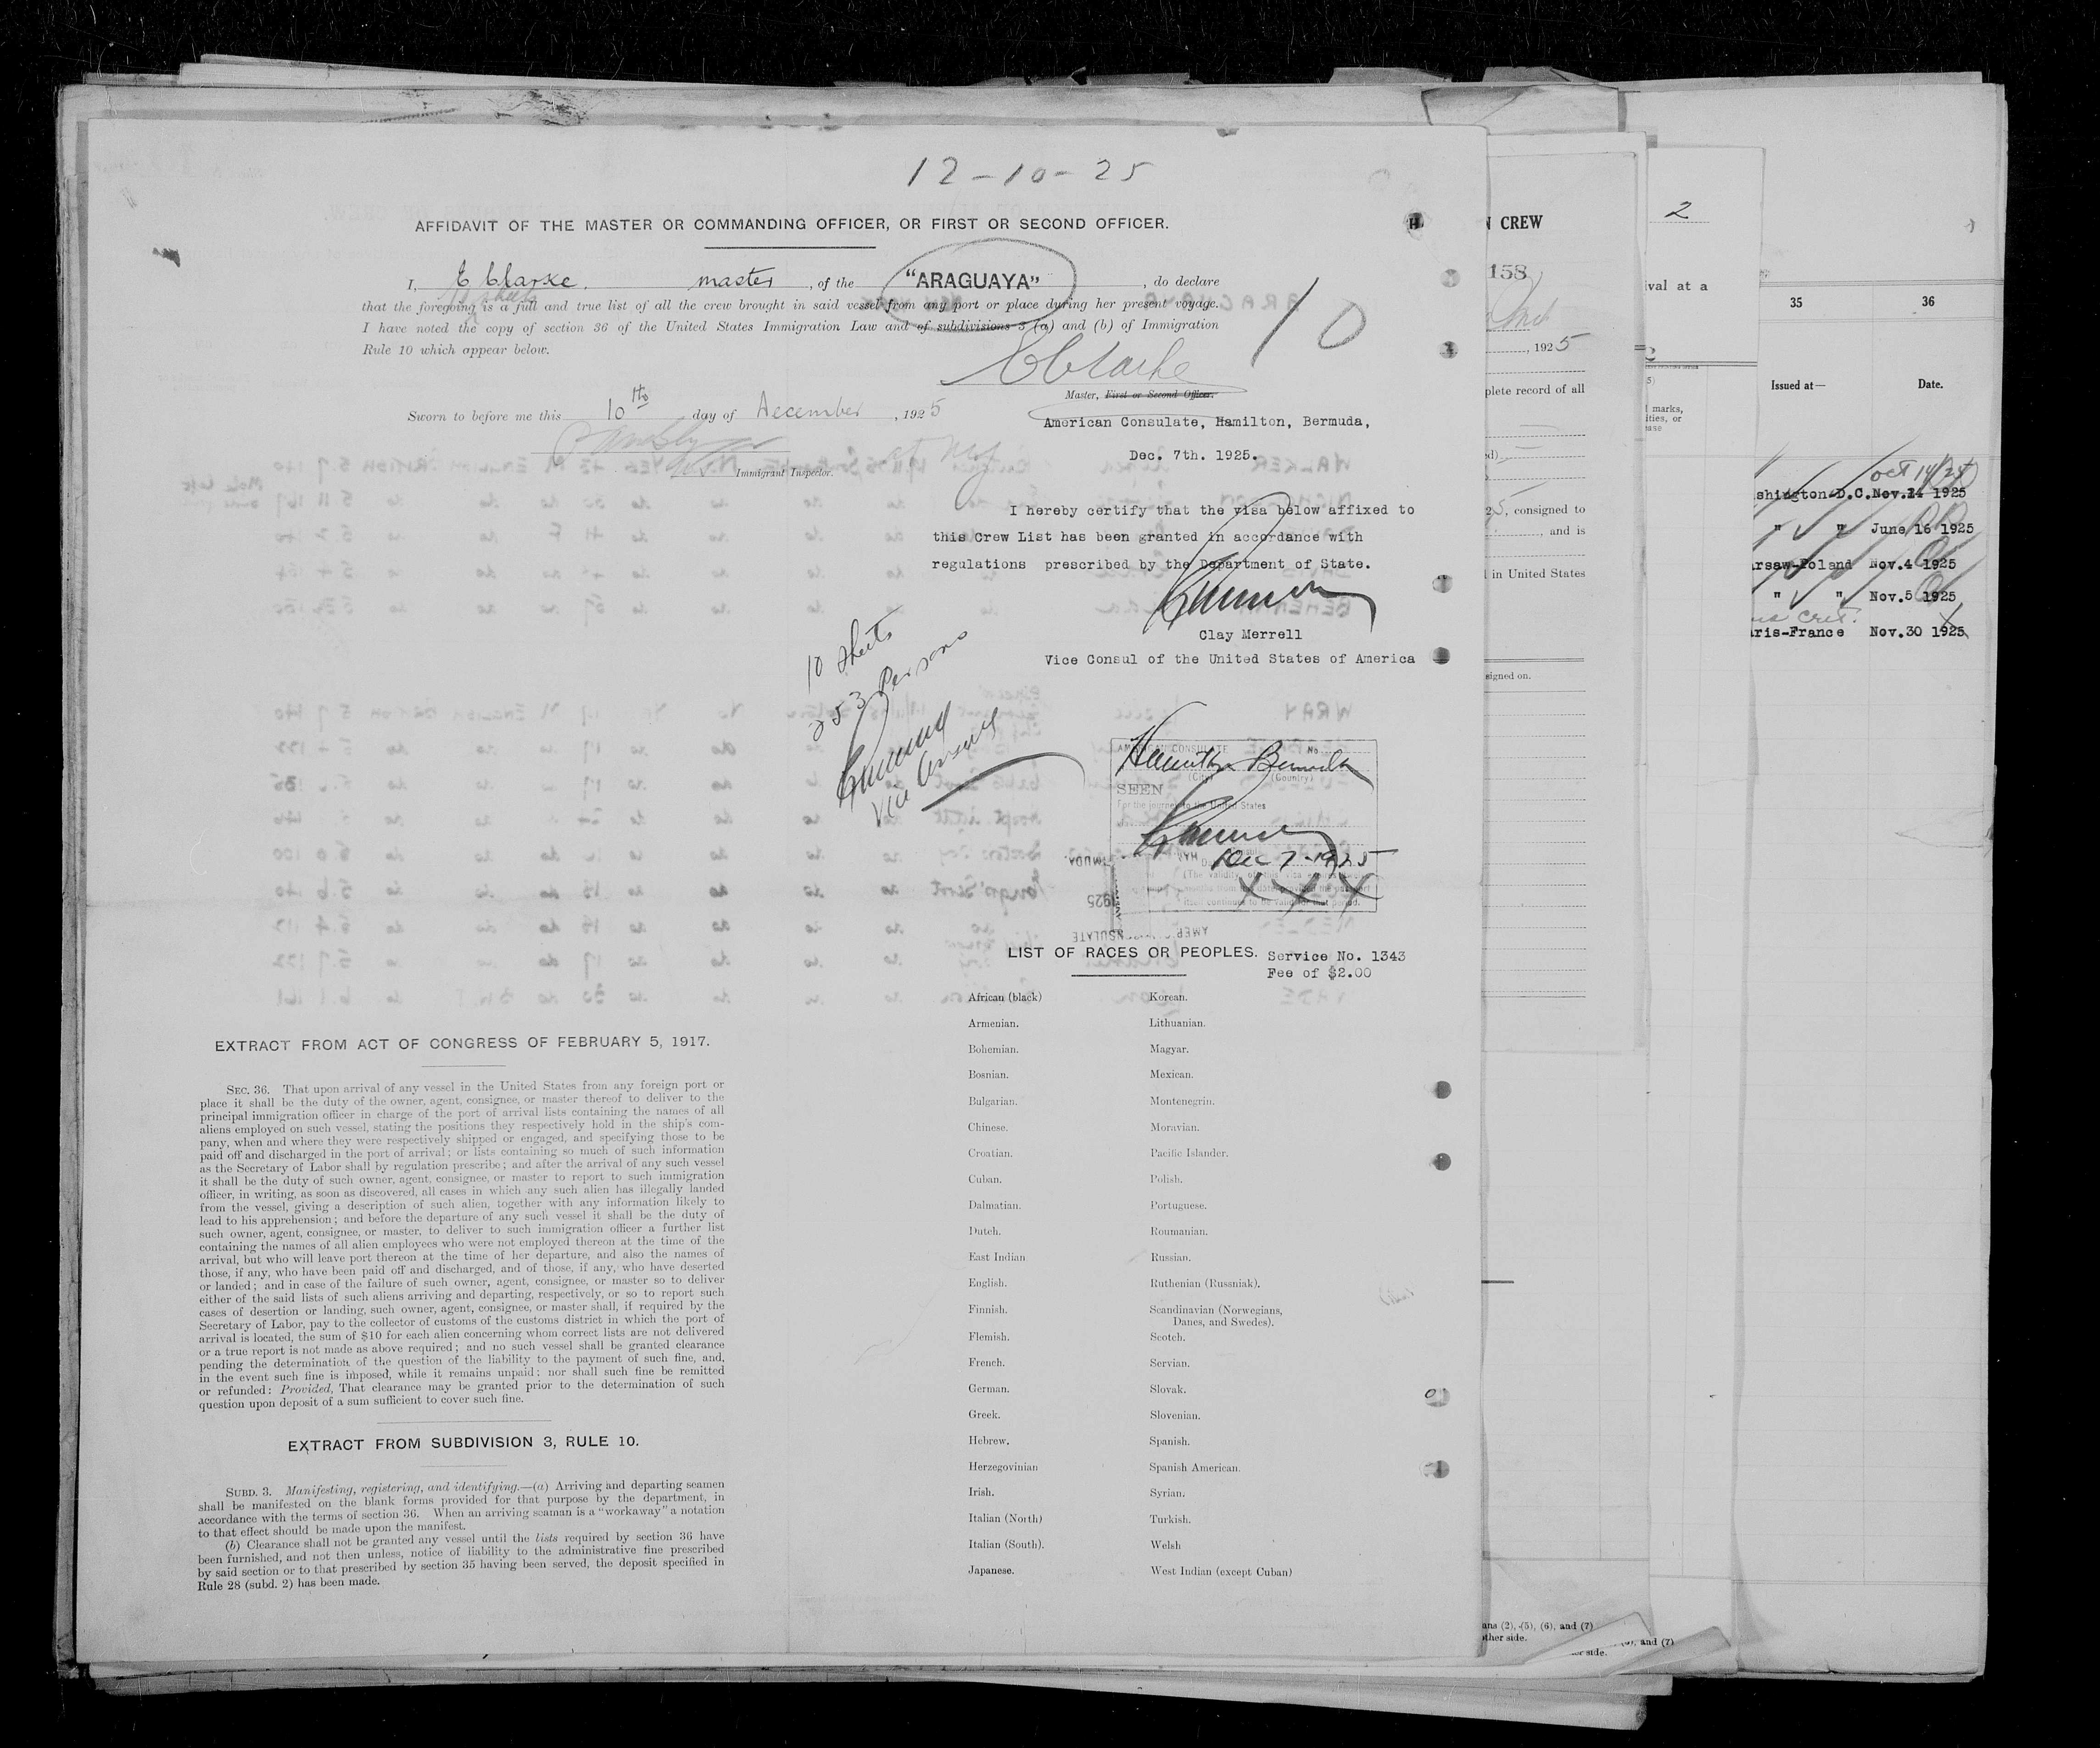 12-10-25
AFFIDAVIT OF THE MASTER OR COMMANDING OFFICER, OR FIRST OR SECOND OFFICER.
I, E Clarke. master, of the "ARAGUAYA", do declare
that the foregoing is a full and true list of all the crew brought in said vessel from any port or place during her present voyage.
I have noted the copy of section 36 of the United States Immigration Law and of subdivisions 3 (a) and (b) of Immigration
Rule 10 which appear below.
10
E Clarke
Master, First or Second Officer.
Sworn to before me this 10th day of December, 1925
Immigrant Inspector.
American Consulate, Hamilton, Bermuda,
Dec. 7th. 1925.
I hereby certify that the visa below affixed to
this Crew List has been granted in accordance with
regulations prescribed by the Department of State.
Clay Merrell
Vice Consul of the United States of America
10 Sheets
253 Persons
Vice Consul
AMERICAN CONSULATE No.
Hamilton Bermuda
(City) (Country)
SEEN
For the journey to the United States
Dec 7-1925
XXX
LIST OF RACES OR PEOPLES.
Service No. 1343
Fee of $2.00
African (black) Korean.
Armenian. Lithuanian.
Bohemian. Magyar.
Bosnian. Mexican.
Bulgarian. Montenegrin.
Chinese. Moravian.
Croatian. Pacific Islander.
Cuban. Polish.
Dalmatian. Portuguese.
Dutch. Roumanian.
East Indian Russian.
English. Ruthenian (Russniak).
Finnish. Scandinavian (Norwegians,
Danes, and Swedes).
Flemish. Scotch.
French. Servian.
German. Slovak.
Greek. Slovenian.
Hebrew. Spanish.
Herzegovinian Spanish American.
Irish. Syrian.
Italian (North) Turkish.
Italian (South). Welsh
Japanese. West Indian (except Cuban)
EXTRACT FROM ACT OF CONGRESS OF FEBRUARY 5, 1917.
SEC. 36. That upon arrival of any vessel in the United States from any foreign port or
place it shall be the duty of the owner, agent, consignee, or master thereof to deliver to the
principal immigration officer in charge of the port of arrival lists containing the names of all
aliens employed on such vessel, stating the positions they respectively hold in the ship's com-
pany, when and where they were respectively shipped or engaged, and specifying those to be
paid off and discharged in the port of arrival; or lists containing so much of such information
as the Secretary of Labor shall by regulation prescribe; and after the arrival of any such vessel
it shall be the duty of such owner, agent, consignee, or master to report to such immigration
officer, in writing, as soon as discovered, all cases in which any such alien has illegally landed
from the vessel, giving a description of such alien, together with any information likely to
lead to his apprehension; and before the departure of any such vessel it shall be the duty of
such owner, agent, consignee, or master, to deliver to such immigration officer a further list
containing the names of all alien employees who were not employed thereon at the time of the
arrival, but who will leave port thereon at the time of her departure, and also the names of
those, if any, who have been paid off and discharged, and of those, if any, who have deserted
or landed; and in case of the failure of such owner, agent, consignee, or master so to deliver
either of the said lists of such aliens arriving and departing, respectively, or so to report such
cases of desertion or landing, such owner, agent, consignee, or master shall, if required by the
Secretary of Labor, pay to the collector of customs of the customs district in which the port of
arrival is located, the sum of $10 for each alien concerning whom correct lists are not delivered
or a true report is not made as above required; and no such vessel shall be granted clearance
pending the determination of the question of the liability to the payment of such fine, and,
in the event such fine is imposed, while it remains unpaid; nor shall such fine be remitted
or refunded: Provided, That clearance may be granted prior to the determination of such
question upon deposit of a sum sufficient to cover such fine.
EXTRACT FROM SUBDIVISION 3, RULE 10.
SUBD. 3. Manifesting, registering, and identifying.—(a) Arriving and departing seamen
shall be manifested on the blank forms provided for that purpose by the department, in
accordance with the terms of section 36. When an arriving seaman is a "workaway" a notation
to that effect should be made upon the manifest.
(b) Clearance shall not be granted any vessel until the lists required by section 36 have
been furnished, and not then unless, notice of liability to the administrative fine prescribed
by said section or to that prescribed by section 35 having been served, the deposit specified in
Rule 28 (subd. 2) has been made.
CREW
158
, 1925
plete record of all
5, consigned to
, and is
in United States
signed on.
(2), (5), (6), and (7)
other side.
and (7)
side.
2
val at a
marks,
35 36
Issued at— Date.
Oct 14/25
shington-D.C. Nov.14 1925
" " June 16 1925
rsaw-Poland Nov.4 1925
" " Nov.5 1925
ris-France Nov.30 1925